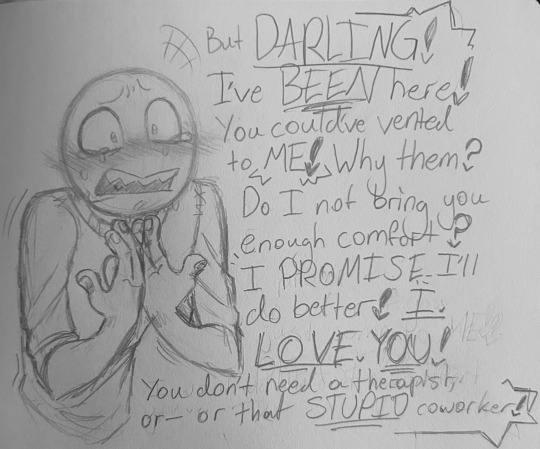 But DARLING!
I've BEEN here!
You could've vented
to ME! Why them?
Do I not bring you
enough comfort?
I PROMISE I'll
do better! I
LOVE YOU!
You don't need a therapist,
or— or that STUPID coworker!